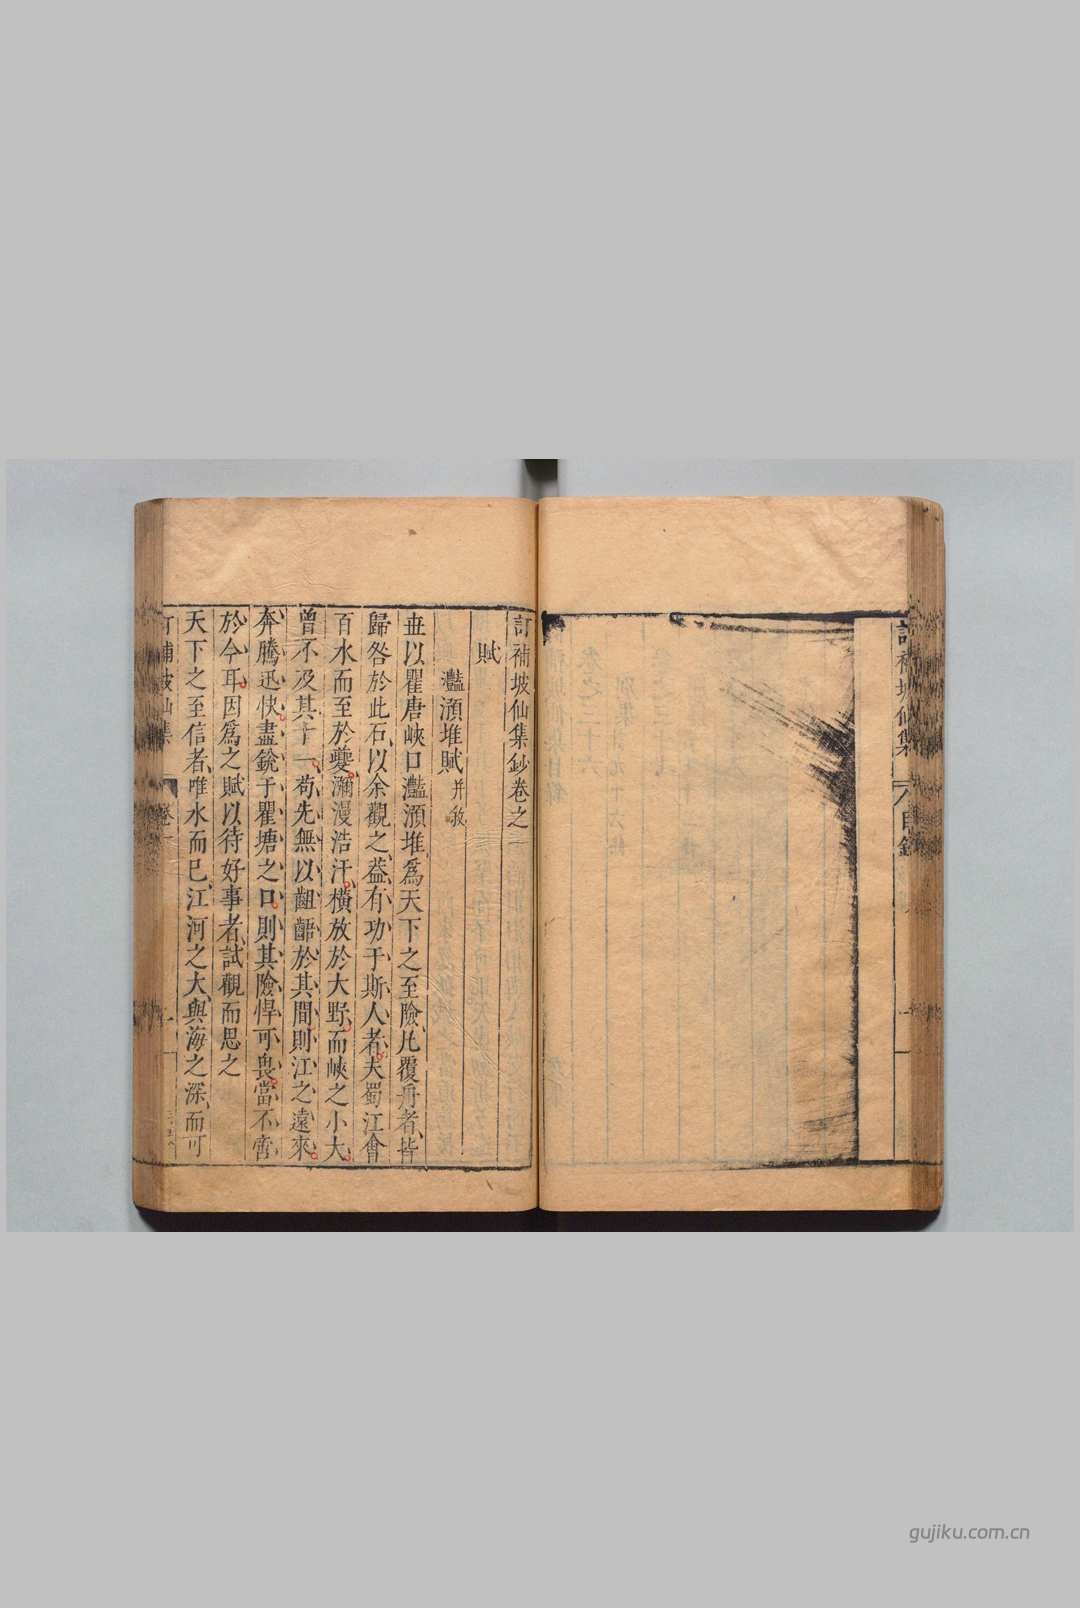 訂補坡仙集
目錄
訂補坡仙集鈔卷之一
賦
灩澦堆賦 并敘
世以瞿唐峽口灩澦堆爲天下之至險凡覆舟者皆
歸咎於此石以余觀之葢有功于斯人者夫蜀江會
百水而至於夔瀰漫浩汗橫放於大野而峽之小大
曾不及其十一苟先無以齟齬於其間則江之遠來
奔騰迅快盡銳于瞿塘之口則其險悍可畏當不啻
於今耳因爲之賦以待好事者試觀而思之
天下之至信者唯水而已江河之大與海之深而可
訂補坡仙集
卷一
一
gujiku.com.cn